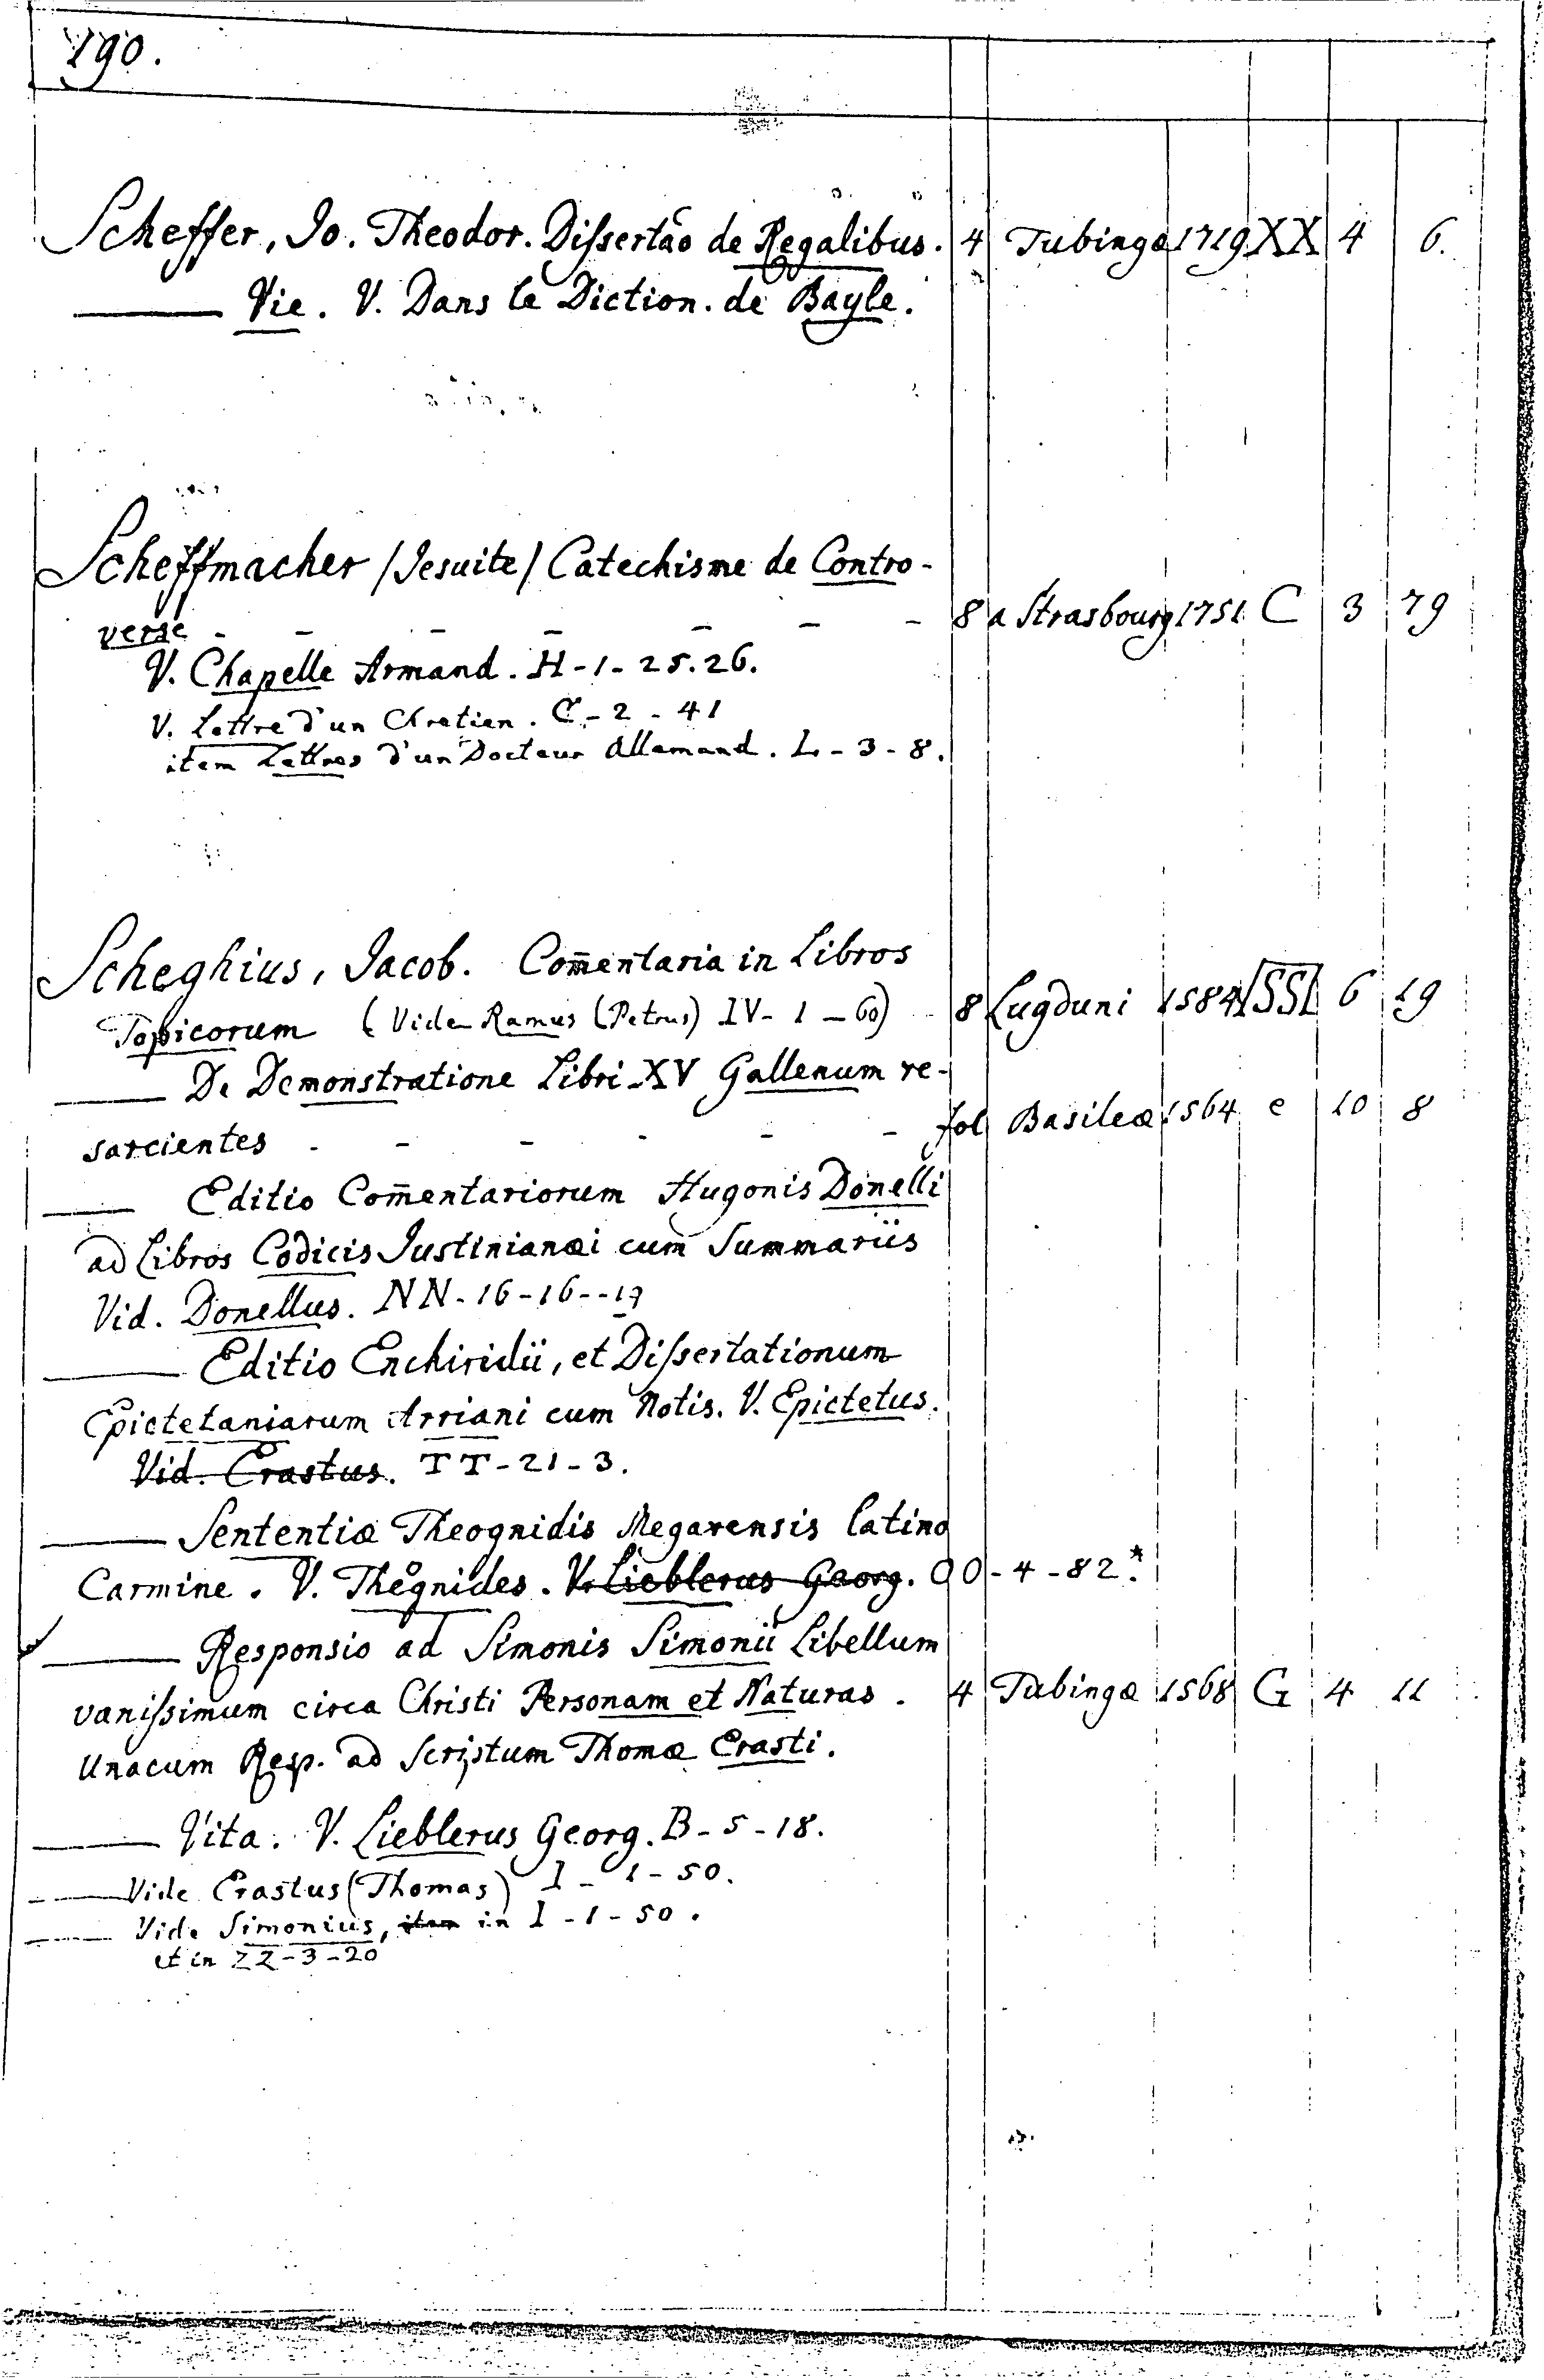 190.
Scheffer, Jo. Theodor. Dissertão de Regalibus. 4 Tubingæ 1719 XX 4 6.
Vie. V. Dans le Diction. de Bayle.
Scheffmacher /Jesuite/ Catechisme de Contro-
verse - - - - - - - 8 a Strasbourg 1751 C 3 79
V. Chapelle Armand. H-1-25.26.
V. Lettre d'un Chretien. C-2-41
item Lettres d'un Docteur Allemand. L-3-8.
Scheghius, Jacob. Com̄entaria in Libros
Topicorum (Vide Ramus (Petrus) IV-1-60) 8 Lugduni 1584 SS 6 19
De Demonstratione Libri XV Gallenum re-
sarcientes - - - - - fol Basileæ 1564 e 10 8
Editio Com̄entariorum Hugonis Donelli
ad Libros Codicis Justinianæi cum Summariis
Vid. Donellus. NN-16-16--19
Editio Enchiridii, et Dissertationum
Epictetaniarum Arriani cum Notis. V. Epictetus.
Vid. Erastus. TT-21-3.
Sententiæ Theognidis Megarensis latino
Carmine. V. Theognides. V. Lieblerus Georg. OO-4-82*
Responsio ad Simonis Simonii Libellum
vanissimum circa Christi Personam et Naturas. 4 Tubingæ 1568 G 4 11
Unacum Resp. ad Scriptum Thomæ Erasti.
Vita. V. Lieblerus Georg. B-5-18.
Vide Erastus (Thomas) I-1-50.
Vide Simonius, item in I-1-50.
et in ZZ-3-20